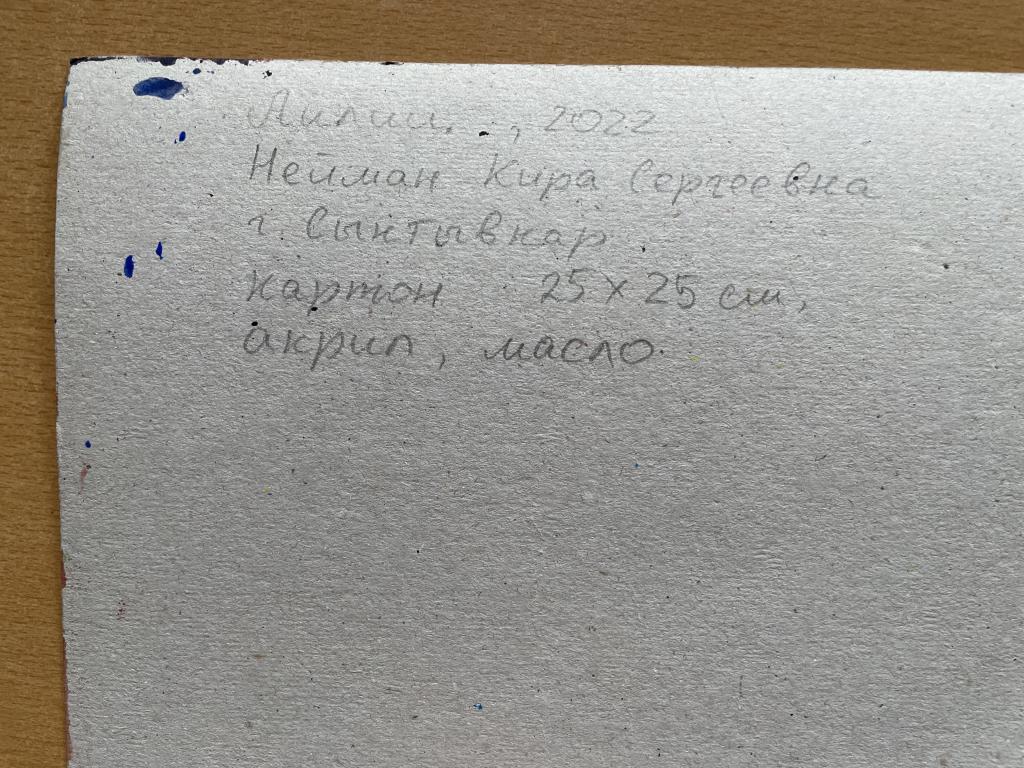 Лилии. , 2022
Нейман Кира Сергеевна
г. Сыктывкар.
Картон 25 х 25 см,
акрил, масло.